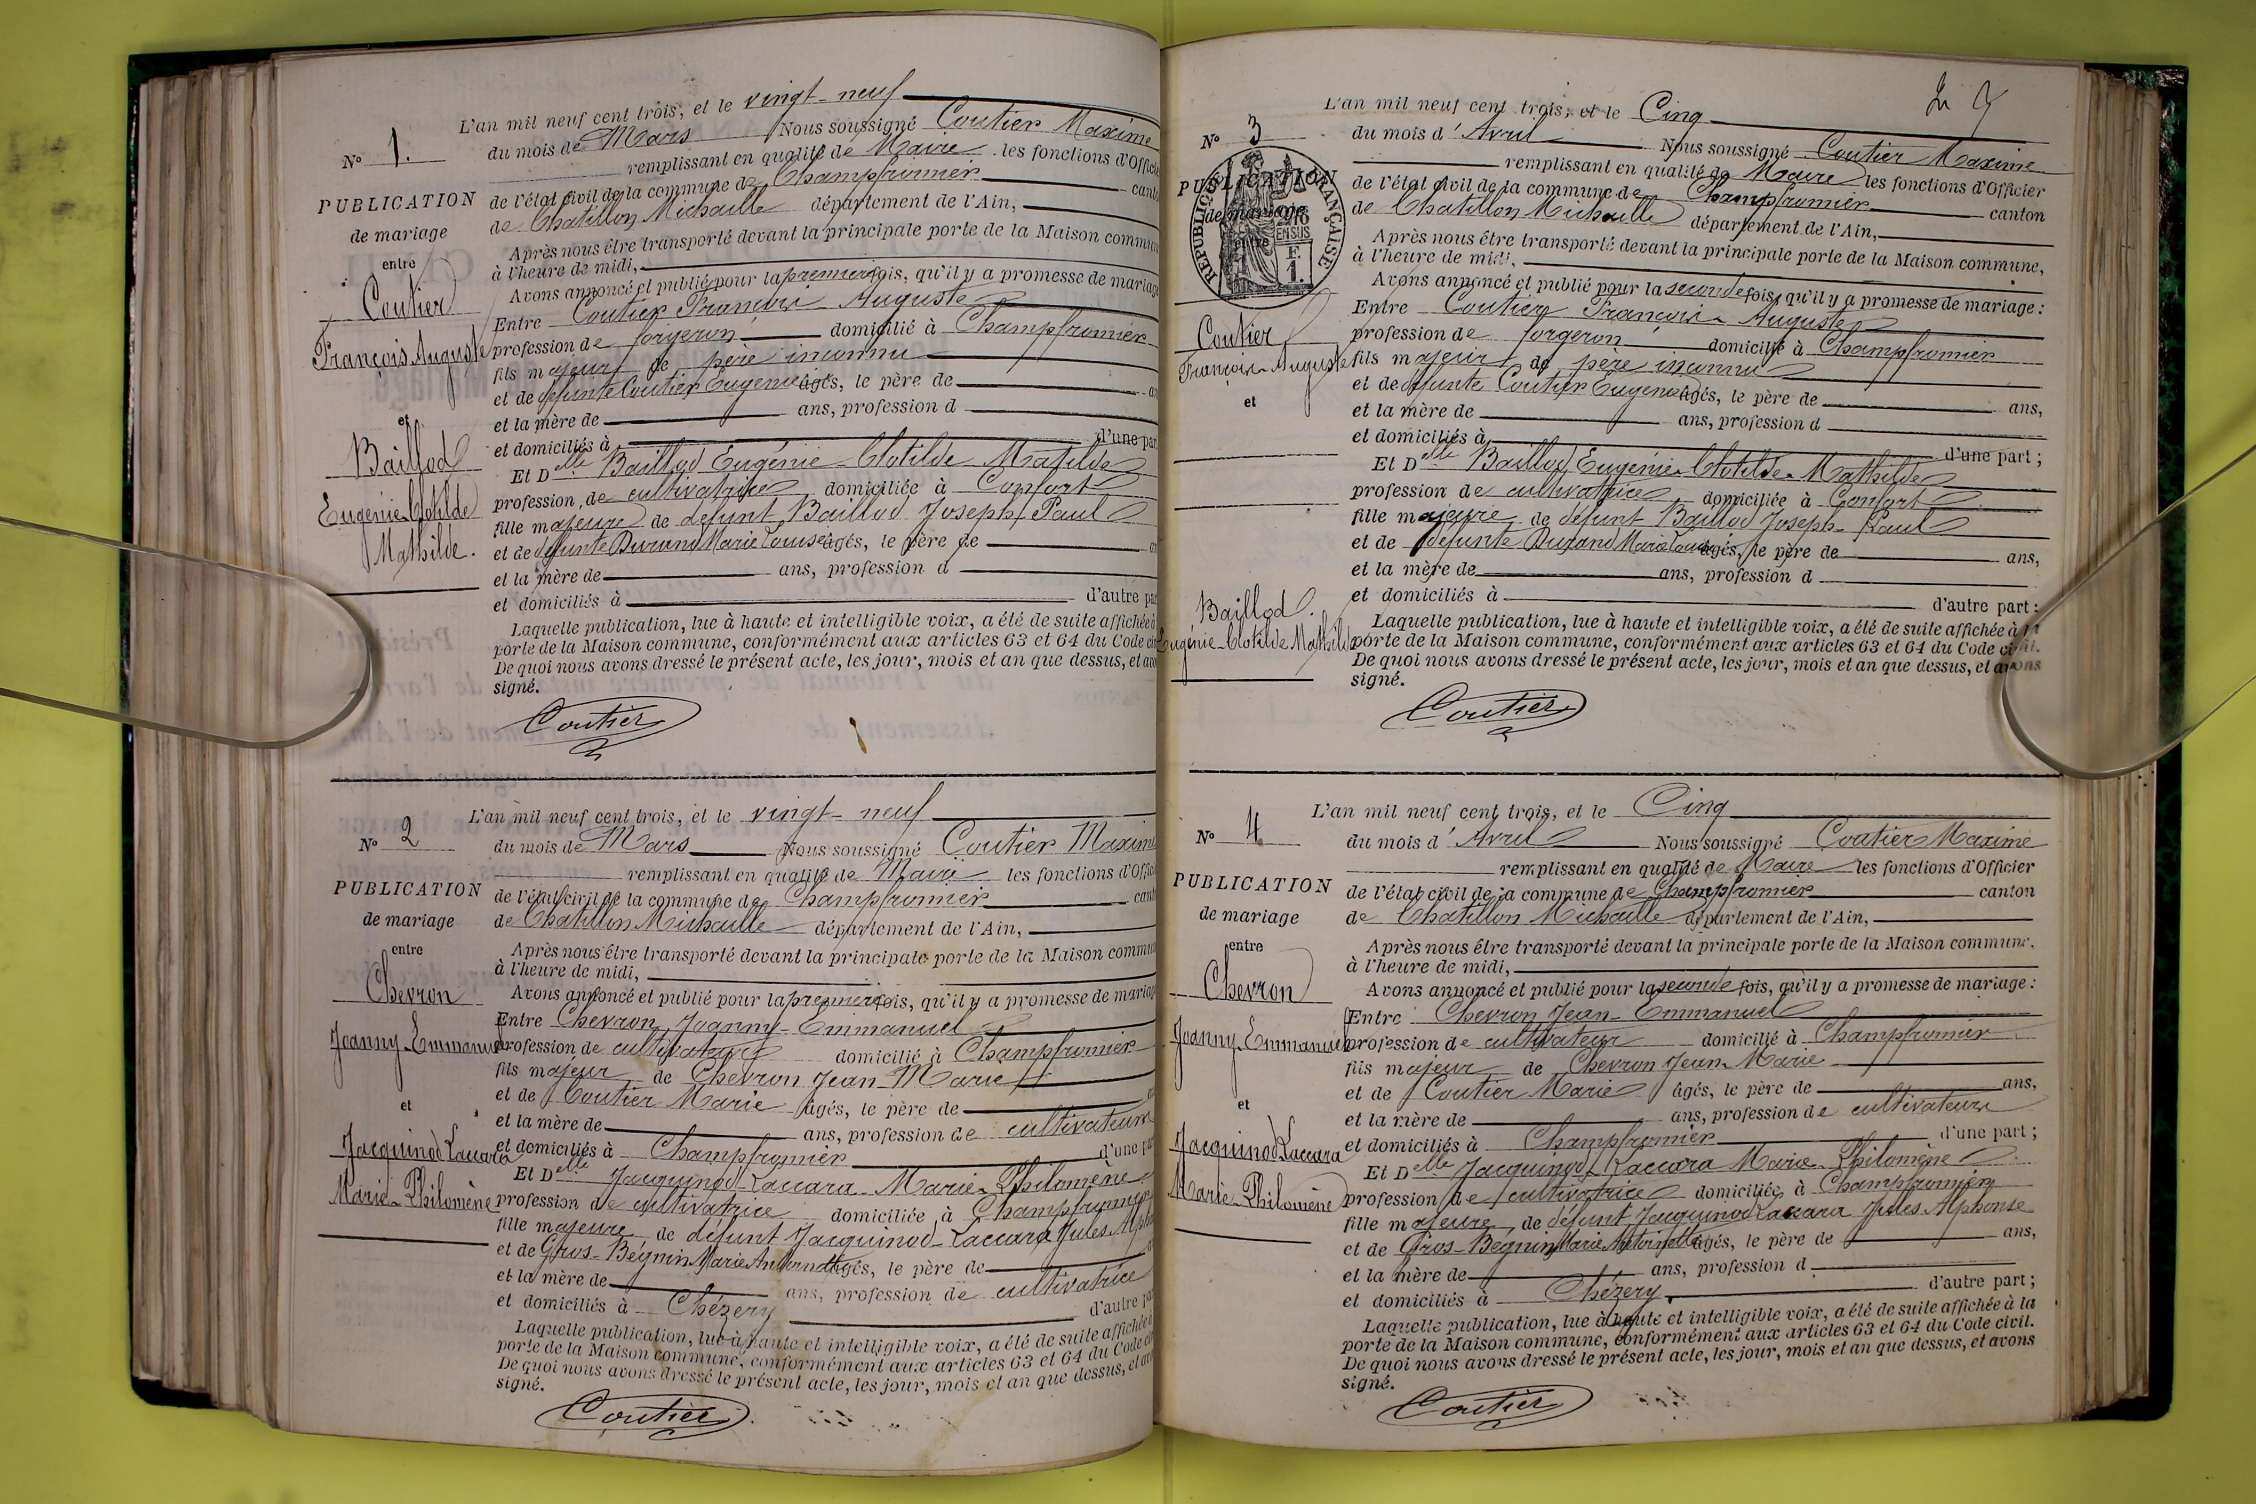 L'an mil neuf cent trois, et le vingt-neuf
N° 1.
du mois de Mars Nous soussigné Coutier Maxime
remplissant en qualité de Maire les fonctions d'Officier
PUBLICATION
de mariage
entre
Coutier
François Auguste
et
Baillod
Eugénie Clotilde
Mathilde.
de l'état civil de la commune de Champfromier canton
de Chatillon Michaille département de l'Ain,
Après nous être transporté devant la principale porte de la Maison commune
à l'heure de midi,
Avons annoncé et publié pour la première fois, qu'il y a promesse de mariage
Entre Coutier François Auguste
profession de forgeron domicilié à Champfromier
fils majeur de père inconnu
et de défunte Coutier Eugénie âgés, le père de
et la mère de ans, profession d
et domiciliés à d'une part
Et Delle Baillod Eugénie Clotilde Matilde
profession de cultivatrice domiciliée à Confort
fille majeure de défunt Baillod Joseph Paul
et de défunte Durand Marie Louise âgés, le père de
et la mère de ans, profession d
et domiciliés à d'autre part
Laquelle publication, lue à haute et intelligible voix, a été de suite affichée à
porte de la Maison commune, conformément aux articles 63 et 64 du Code ci
De quoi nous avons dressé le présent acte, les jour, mois et an que dessus, et avo
signé.
Coutier
L'an mil neuf cent trois, et le vingt-neuf
N° 2
du mois de Mars Nous soussigné Coutier Maxime
remplissant en qualité de Maire les fonctions d'Offic
PUBLICATION
de mariage
entre
Chevron
Joanny-Emmanuel
et
Jacquinod Laccara
Marie-Philomène
de l'état civil de la commune de Champfromier cant
de Chatillon Michaille département de l'Ain,
Après nous être transporté devant la principale porte de la Maison commun
à l'heure de midi,
Avons annoncé et publié pour la première fois, qu'il y a promesse de mariage
Entre Chevron Joanny-Emmanuel
profession de cultivateur domicilié à Champfromier
fils majeur de Chevron Jean-Marie
et de Coutier Marie âgés, le père de
et la mère de ans, profession de cultivateurs
et domiciliés à Champfromier d'une pa
Et Delle Jacquinod-Laccara Marie-Philomène
profession de cultivatrice domiciliée à Champfromier
fille majeure de défunt Jacquinod-Laccara Jules Alph
et de Gros-Bégnin Marie Antoinette âgés, le père de
et la mère de ans, profession de cultivatrice
et domiciliés à Chézery d'autre pa
Laquelle publication, lue à haute et intelligible voix, a été de suite affichée à
porte de la Maison commune, conformément aux articles 63 et 64 du Code ci
De quoi nous avons dressé le présent acte, les jour, mois et an que dessus, et av
signé.
Coutier
L'an mil neuf cent trois, et le Cinq
N° 3
du mois d'Avril Nous soussigné Coutier Maxime
remplissant en qualité de Maire les fonctions d'Officier
PUBLICATION
de mariage
entre
RÉPUBLIQUE FRANÇAISE
Coutier
François-Auguste
et
Baillod.
Eugénie-Clotilde Mathilde
de l'état civil de la commune de Champfromier canton
de Chatillon Michaille département de l'Ain,
Après nous être transporté devant la principale porte de la Maison commune,
à l'heure de midi,
Avons annoncé et publié pour la seconde fois, qu'il y a promesse de mariage :
Entre Coutier François-Auguste
profession de forgeron domicilié à Champfromier
fils majeur de père inconnu
et de défunte Coutier Eugénie âgés, le père de ans,
et la mère de ans, profession d
et domiciliés à d'une part ;
Et Delle Baillod Eugénie-Clotilde-Mathilde
profession de cultivatrice domiciliée à Confort
fille majeure de défunt Baillod Joseph-Paul
et de défunte Durand Marie Louise âgés, le père de ans,
et la mère de ans, profession d
et domiciliés à d'autre part :
Laquelle publication, lue à haute et intelligible voix, a été de suite affichée à la
porte de la Maison commune, conformément aux articles 63 et 64 du Code civil.
De quoi nous avons dressé le présent acte, les jour, mois et an que dessus, et avons
signé.
Coutier
L'an mil neuf cent trois, et le Cinq
N° 4
du mois d'Avril Nous soussigné Coutier Maxime
remplissant en qualité de Maire les fonctions d'Officier
PUBLICATION
de mariage
entre
Chevron
Joanny-Emmanuel
et
Jacquinod Laccara
Marie-Philomène
de l'état civil de la commune de Champfromier canton
de Chatillon Michaille département de l'Ain,
Après nous être transporté devant la principale porte de la Maison commune.
à l'heure de midi,
Avons annoncé et publié pour la seconde fois, qu'il y a promesse de mariage :
Entre Chevron Jean-Emmanuel
profession de cultivateur domicilié à Champfromier
fils majeur de Chevron Jean-Marie
et de Coutier Marie âgés, le père de ans,
et la mère de ans, profession de cultivateurs
et domiciliés à Champfromier d'une part ;
Et Delle Jacquinod-Laccara Marie-Philomène
profession de cultivatrice domiciliée à Champfromier
fille majeure de défunt Jacquinod Laccara Jules Alphonse
et de Gros-Bégnin Marie Antoinette âgés, le père de ans,
et la mère de ans, profession d
et domiciliés à Chézery. d'autre part ;
Laquelle publication, lue à haute et intelligible voix, a été de suite affichée à la
porte de la Maison commune, conformément aux articles 63 et 64 du Code civil.
De quoi nous avons dressé le présent acte, les jour, mois et an que dessus, et avons
signé.
Coutier